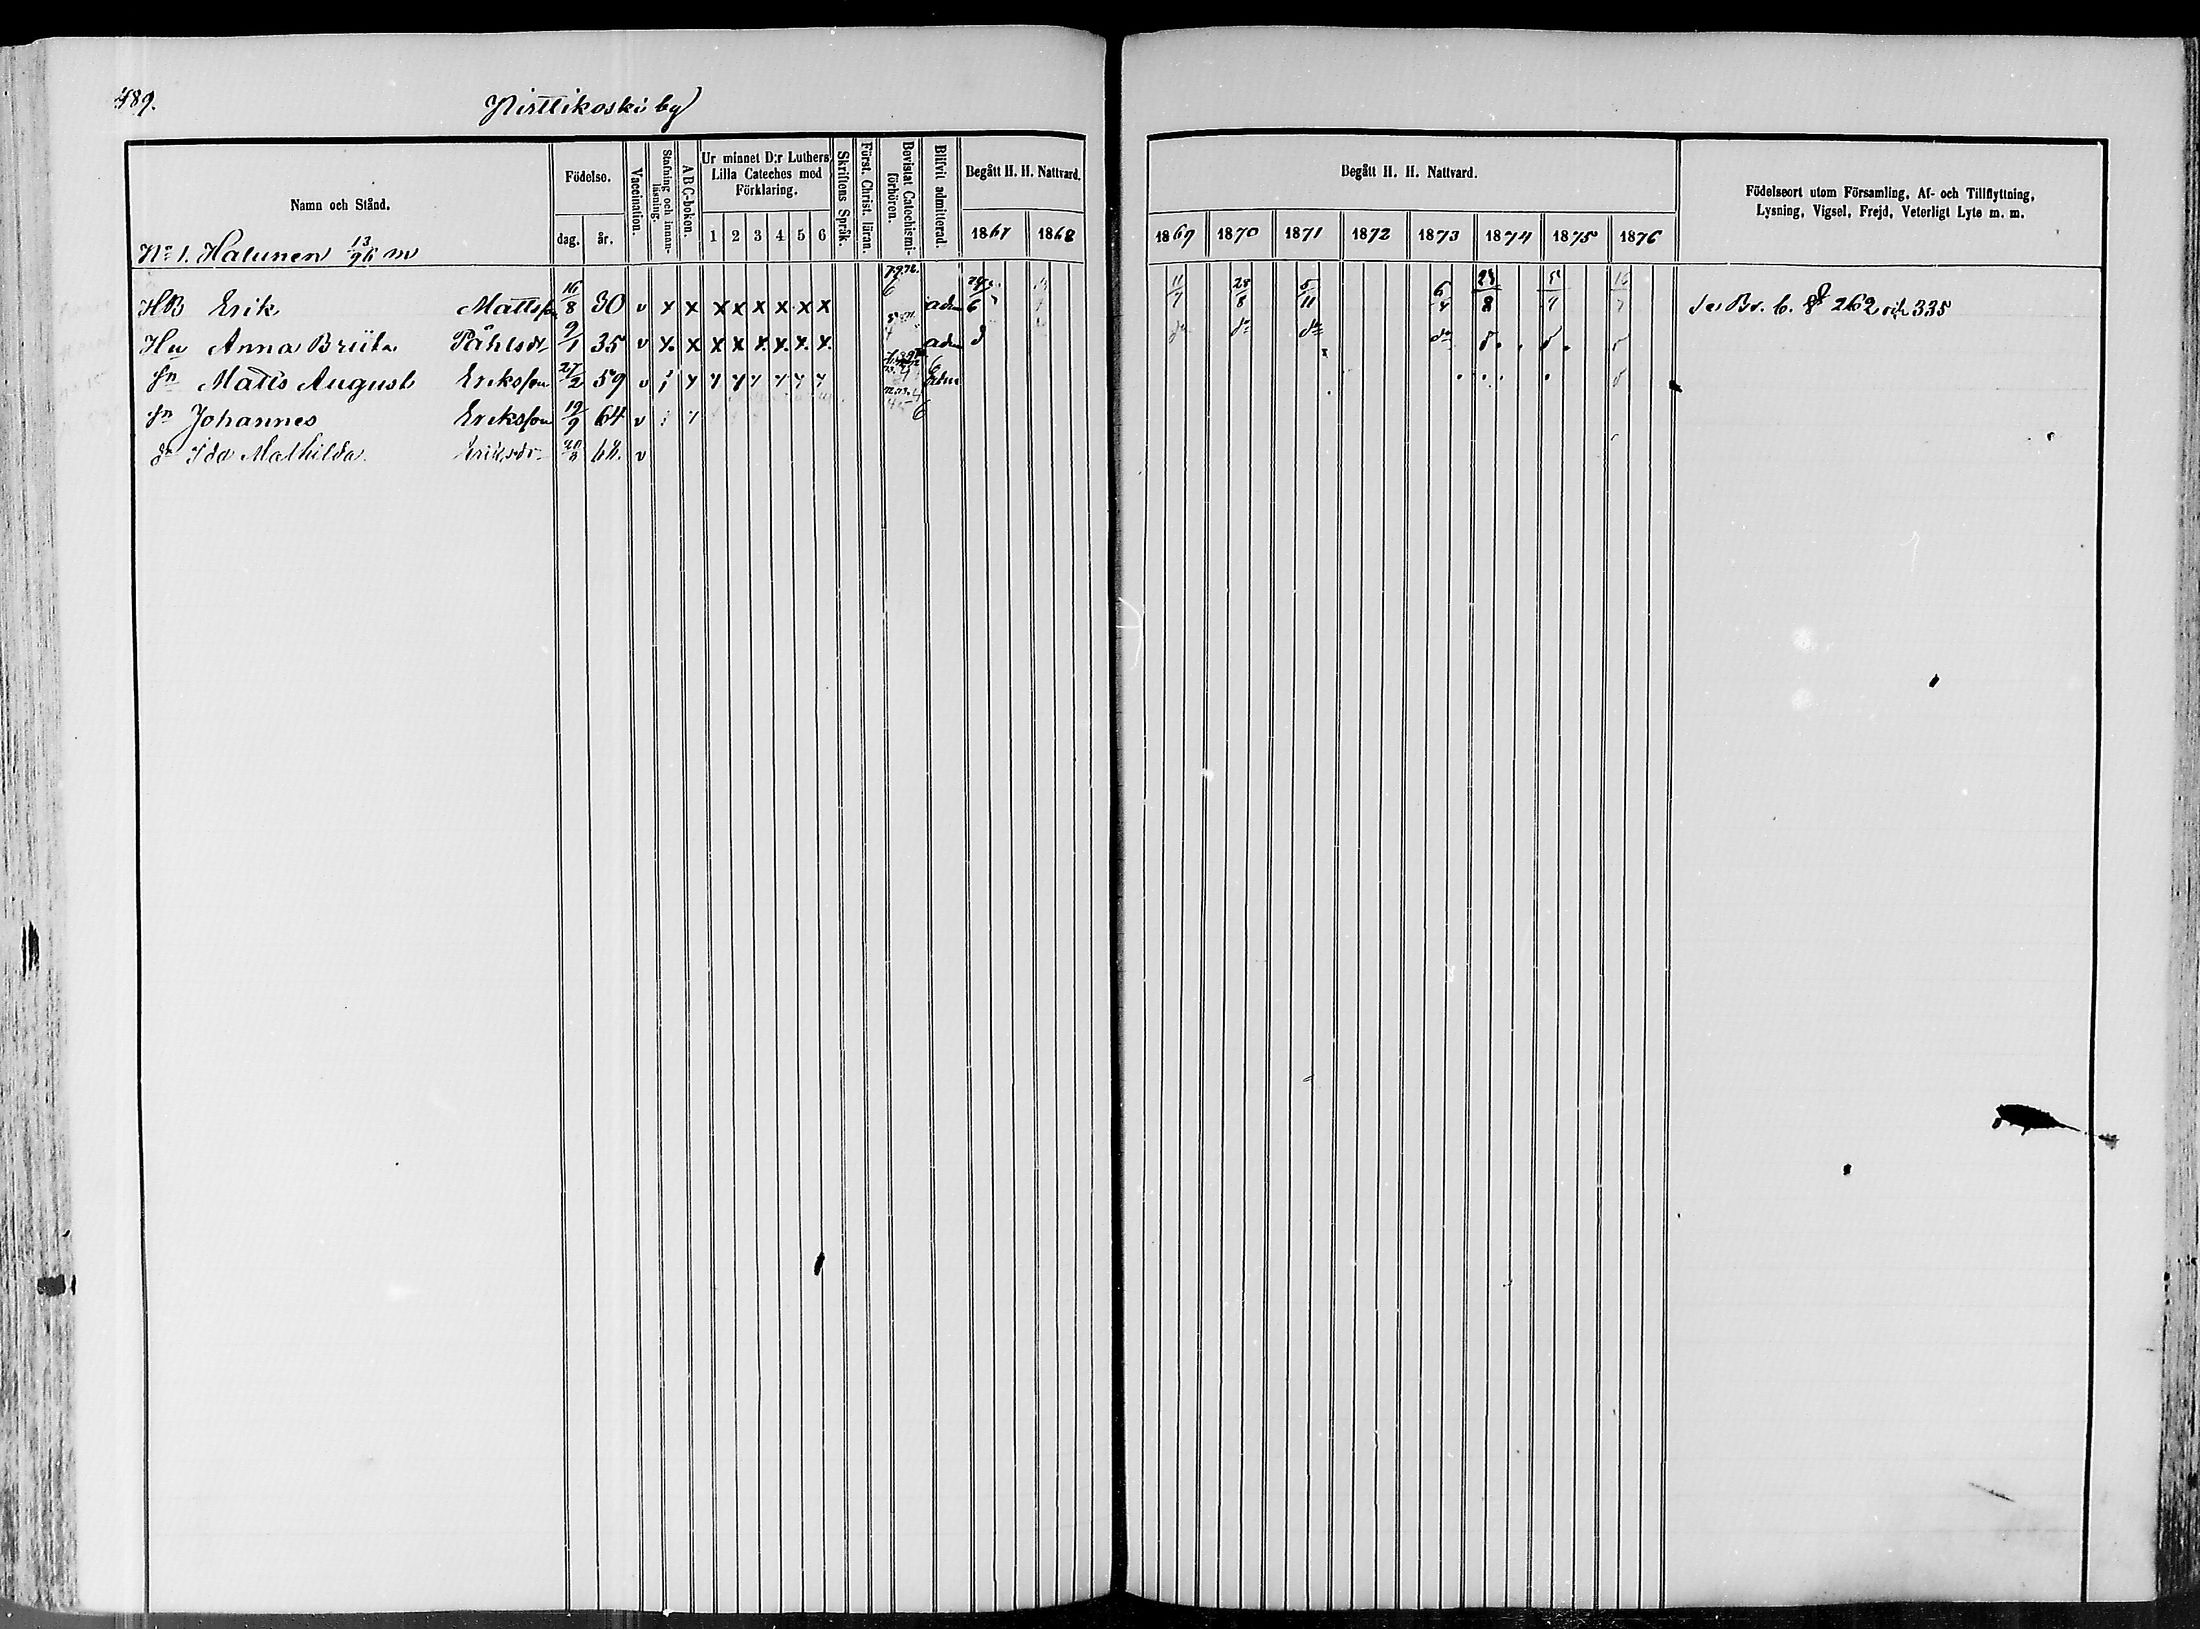 489.
Pirttikoski by
Namn och Stånd.
Födelse.
dag. år.
Vaccination.
Stafning och innanläsning.
A B C-boken.
Ur minnet D:r Luthers Lilla Cateches med Förklaring.
1 2 3 4 5 6
Skriftens Språk.
Först. Christ. läran.
Bevistat Catechismiförhören.
Blifvit admitterad.
Begått H. H. Nattvard.
1867 1868
Begått H. H. Nattvard.
1869 1870 1871 1872 1873 1874 1875 1876
Födelseort utom Församling, Af- och Tillflyttning,
Lysning, Vigsel, Frejd, Veterligt Lyte m. m.
No 1. Halunen 13/96 m
HB Erik Mattsson 16/8 30 v x x x x x x x x adm 11/7 28/8 5/11 6/4 23/8 5/7 16/7 Se Br. b. 262 och 335
Hu Anna Briita Påhlsdr 9/1 35 v x. x x x x. x. x. x. adm do do do do
Sn Matts August Eriksson 27/2 59 v adm
Sn Johannes Eriksson 19/9 64 v
dr Ida Mathilda Eriksdr 68. v